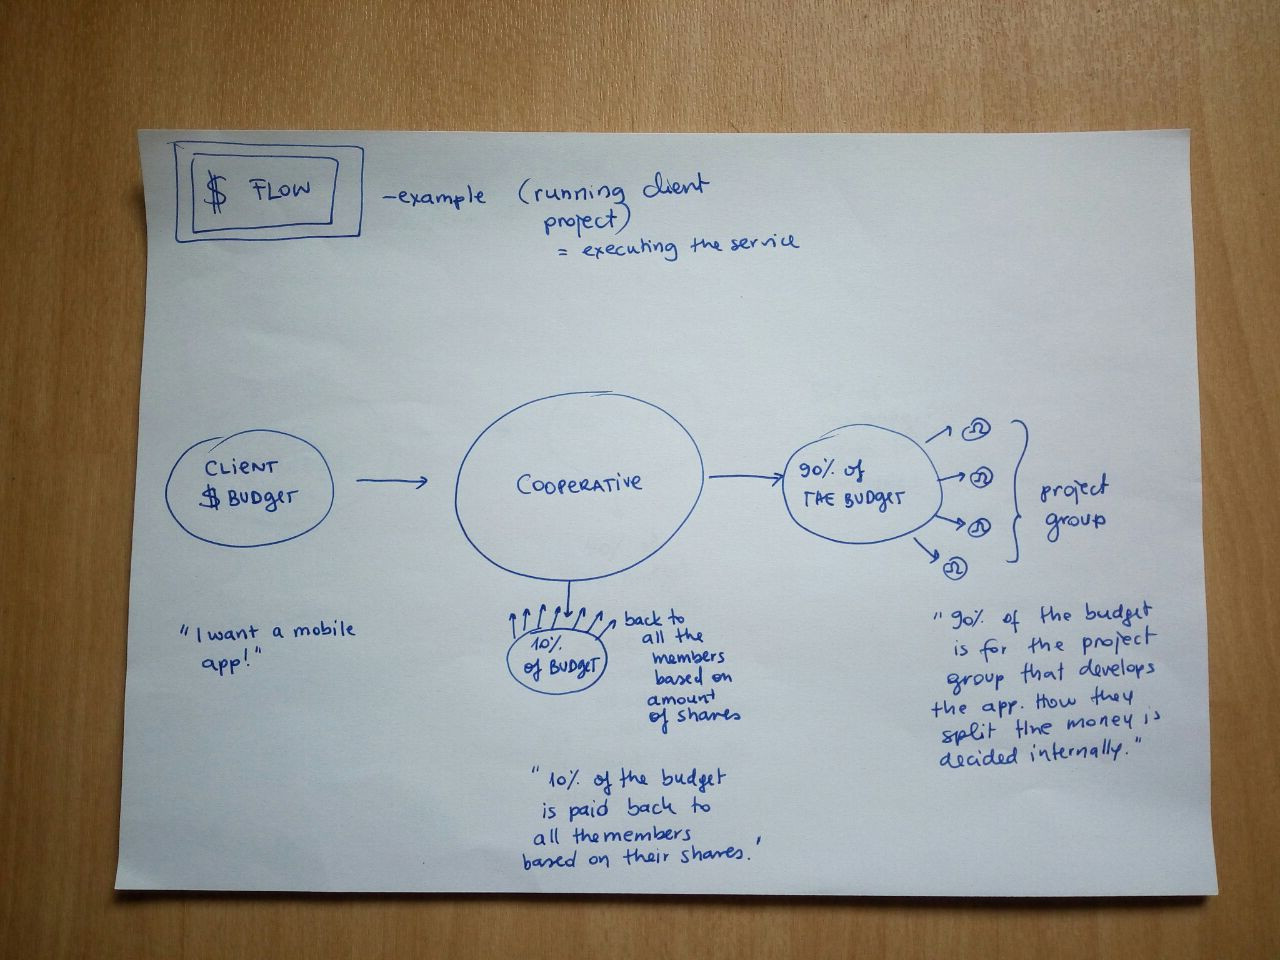 $ FLOW
- example (running client
project)
= executing the service
CLIENT
$ BUDGET
COOPERATIVE
90% of
THE BUDGET
project
group
"I want a mobile
app!"
10%
of BUDGET
back to
all the
members
based on
amount
of shares
"10% of the budget
is paid back to
all the members
based on their shares.'
"90% of the budget
is for the project
group that develops
the app. How they
split the money is
decided internally."